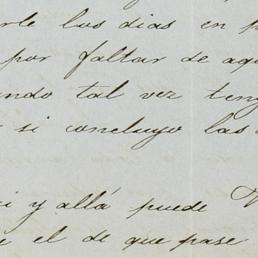 rle los dias en p
por faltar de aqu
ando tal vez teng
si concluyo las
i y allá puede V
e el de que pase